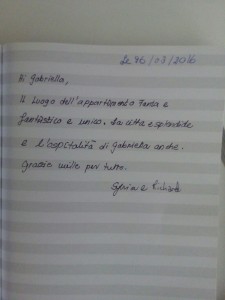 16/03/2016
Di Gabriella,
Il Luogo dell'appartamento Terra e
fantastico e unico. La citta e splendida
e l'ospitalità di Gabriella anche.
Grazie mille per tutto.
e